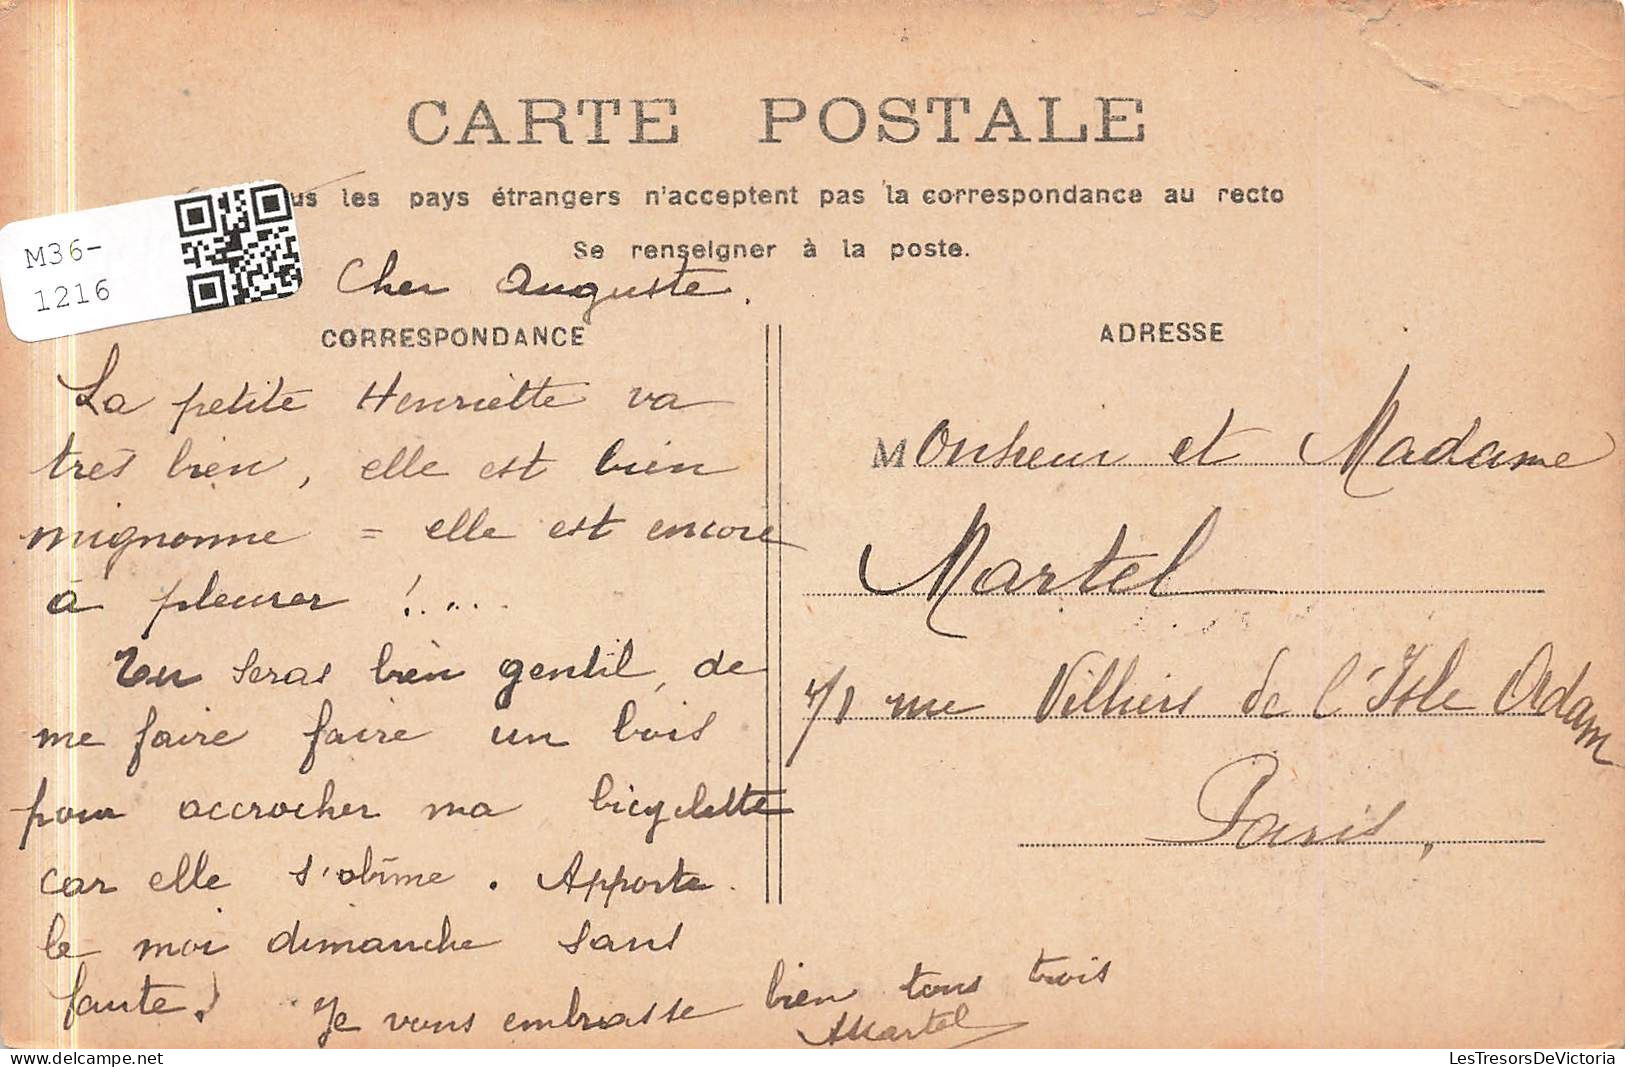 CARTE POSTALE
us les pays étrangers n'acceptent pas la correspondance au recto
Se renseigner à la poste.
M36-
1216
Cher Auguste.
CORRESPONDANCE
La petite Henriette va
très bien, elle est bien
mignonne = elle est encore
à pleurer !....
Tu seras bien gentil, de
me faire faire un bois
pour accrocher ma bicyclette
car elle s'abîme. Apporte
le moi dimanche sans
faute.
Je vous embrasse bien tous trois
AMartel
ADRESSE
Monsieur et Madame
Martel
rue Villiers de l'Isle Adam
Paris,
LesTresorsDeVictoria